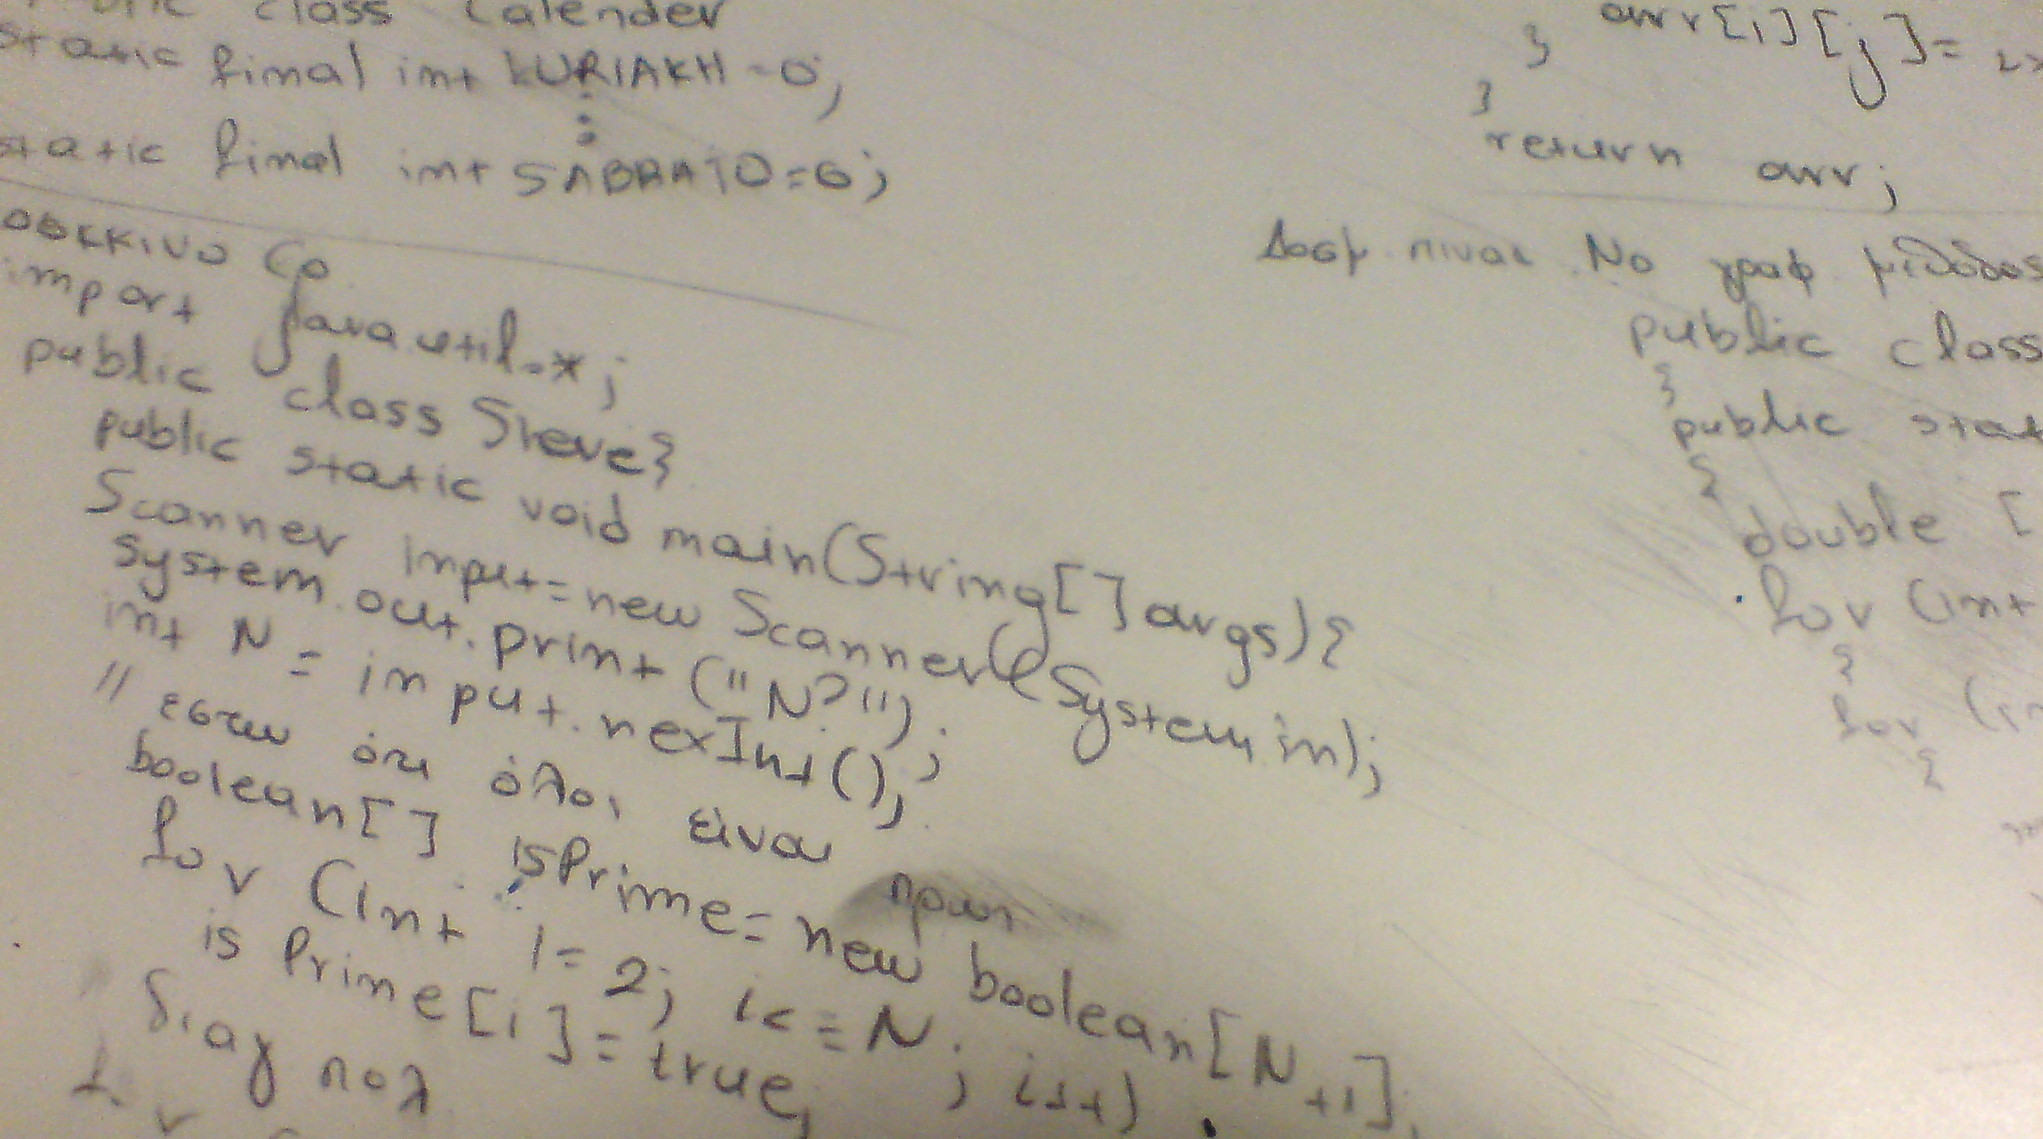 class Calender
static final int KURIAKH=0;
static final int SABBATO=6;
import java.util.*;
public class Sieve{
public static void main(String[] args){
Scanner input=new Scanner(System.in);
System.out.print("N?");
int N = input.nexInt();
" εστω ότι όλοι είναι πρωτ
boolean[] isPrime=new boolean[N+1],
for (int i=2; i<=N; i++)
isPrime[i]=true;
διαγ πολ
arr[i][j]=
}
}
return arr;
Δοσμ πινακ Νο γραφ μέθοδος
public class
{
public stat
{
double [
for (int
{
for (in
{